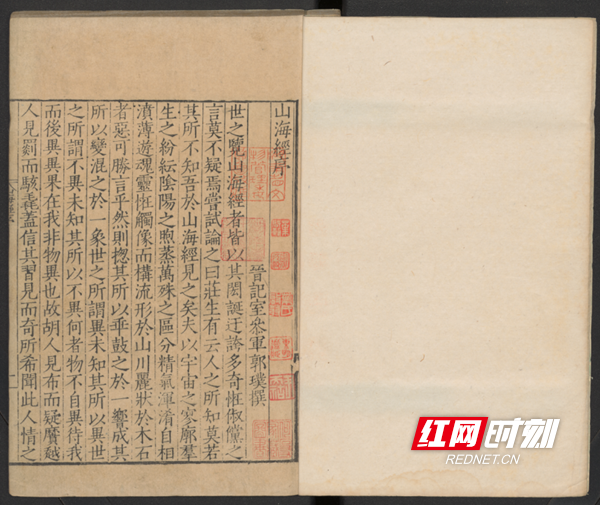 山海經序
晉記室參軍郭璞撰
世之覽山海經者皆以其閎誕迂誇多奇怪俶儻之
言莫不疑焉嘗試論之曰莊生有云人之所知莫若
其所不知吾於山海經見之矣夫以宇宙之寥廓羣
生之紛紜陰陽之煦蒸萬殊之區分精氣渾淆自相
濆薄遊魂靈怪觸像而構流形於山川麗狀於木石
者惡可勝言乎然則揔其所以乖鼓之於一響成其
所以變混之於一象世之所謂異未知其所以異世
之所謂不異未知其所以不異何者物不自異待我
而後異異果在我非物異也故胡人見布而疑黂越
人見罽而駭毳蓋信其習見而奇所希聞此人情之
紅网时刻
REDNET.CN